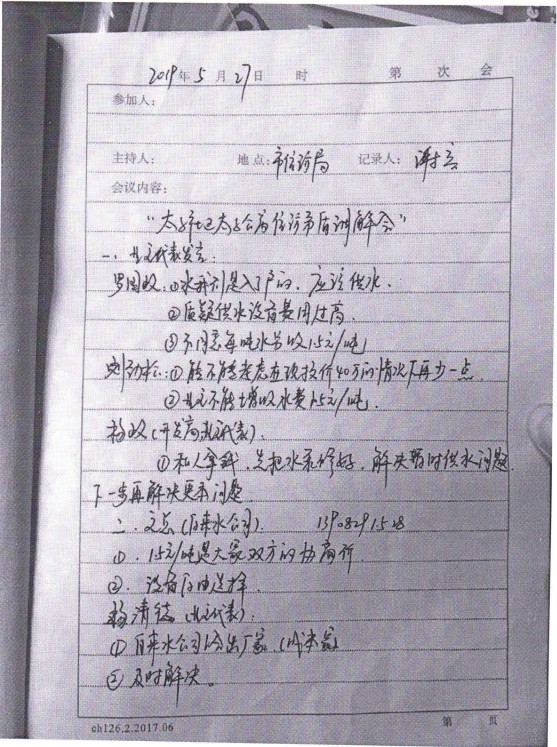 2019年5月27日 时 第 次 会
参加人：
主持人： 地点：市信访局 记录人：
会议内容：
信访矛盾调解会”
一、业主代表发言：
①水科别是入了户的，应该供水.
②质疑供水设备费用过高.
③不同意每吨水另收1.5元/吨
①能不能考虑在现报价40万的情况下再少一点.
②业主不能增收水费1.5元/吨.
(开发商业主代表)：
①私人拿钱，先把水泵修好，解决暂时供水问题.
下一步再解决更本问题.
二、文兵(自来水公司). 13908291528
①. 1.5元/吨是大家双方的协商价.
②. 设备自由选择.
清 (业主代表)：
①自来水公司
②及时解决。
ch126.2.2017.06 第 页